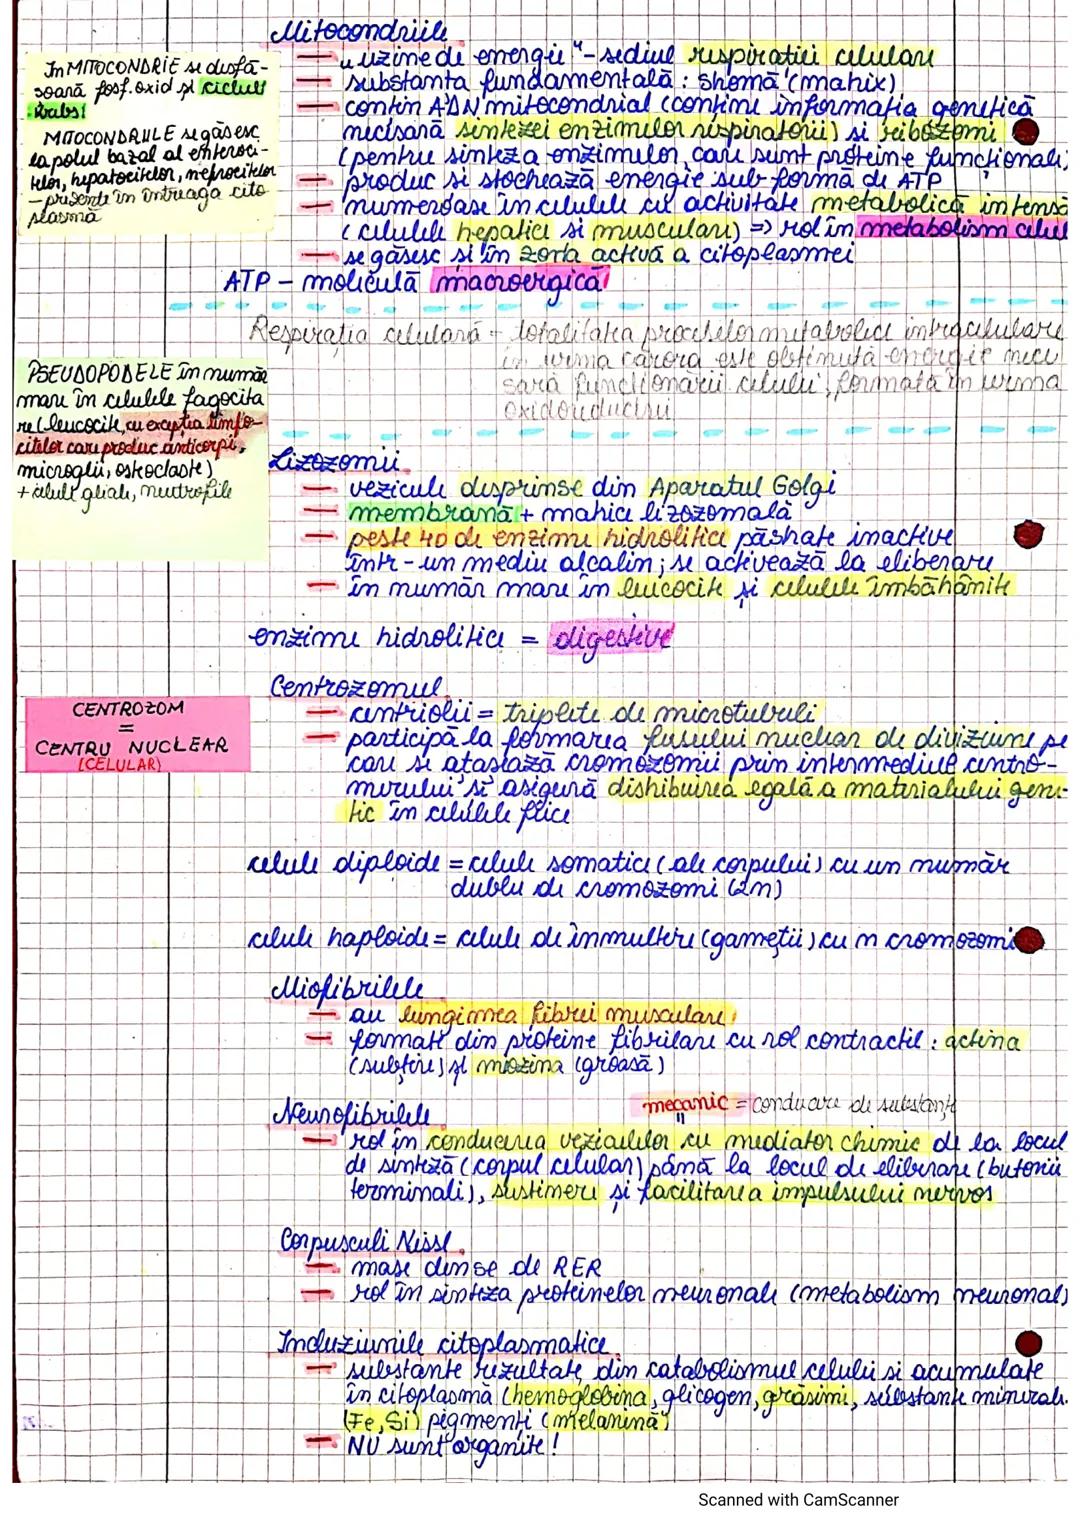 Mitocondriile
— „uzine de energie" - sediul respiratiei celulare
— substanta fundamentală: stromă (matrix)
— contin ADN mitocondrial (contine informatia genetică
necesară sintezei enzimelor respiratorii) si ribozomi
(pentru sinteza enzimelor, care sunt proteine functionale)
— produc si stochează energie sub formă de ATP
— numeroase in celulele cu activitate metabolică intensă
(celulele hepatice si musculare) => rol în metabolism celul
— se găsesc si în zona activă a citoplasmei
ATP - moleculă macroergică
In MITOCONDRIE se desfă-
soară fosf. oxid și ciclul
Krebs!
MITOCONDRIILE se găsesc
la polul bazal al enteroci-
telor, hepatocitelor, nefrocitelor
- prezente în întreaga cito
plasmă
Respiratia celulară - totalitatea proceselor metabolice intracelulare
in urma cărora este obtinută energie nece
sară functionării celulei, formată în urma
oxidoreducerii
PSEUDOPODELE în număr
mare în celulele fagocita
re (leucocite, cu exceptia limfo-
citelor care produc anticorpi,
microglii, osteoclaste)
+ celule gliale, neutrofile
Lizozomii
— vezicule desprinse din Aparatul Golgi
— membrană + matrice lizozomală
— peste 40 de enzime hidrolitice păstrate inactive
într-un mediu alcalin; se activează la eliberare
— în număr mare în leucocite și celulele îmbătrânite
enzime hidrolitice = digestive
Centrozomul
— centriolii = triplete de microtubuli
— participă la formarea fusului nuclear de diviziune pe
care se atasează cromozomii prin intermediul centro-
merului si asigură distribuirea egală a materialului gene-
tic în celulele fiice
CENTROZOM
=
CENTRU NUCLEAR
(CELULAR)
celule diploide = celule somatice (ale corpului) cu un număr
dublu de cromozomi (2n)
celule haploide = celule de înmultire (gameții) cu n cromozomi
Miofibrilele
— au lungimea fibrei musculare
— formate din proteine fibrilare cu rol contractil: actina
(subțire) și miozina (groasă)
Neurofibrilele
mecanic = conducere de substanțe
"
— rol în conducerea veziculelor cu mediator chimic de la locul
de sinteză (corpul celular) până la locul de eliberare (butonii
terminali), sustinere și facilitarea impulsului nervos
Corpusculi Nissl
— mase dense de RER
— rol în sinteza proteinelor neuronale (metabolism neuronal)
Incluziunile citoplasmatice
— substante rezultate din catabolismul celulei si acumulate
în citoplasmă (hemoglobina, glicogen, grăsimi, substante minerale
(Fe, Si) pigmenți (melanină)
— NU sunt organite!
Scanned with CamScanner